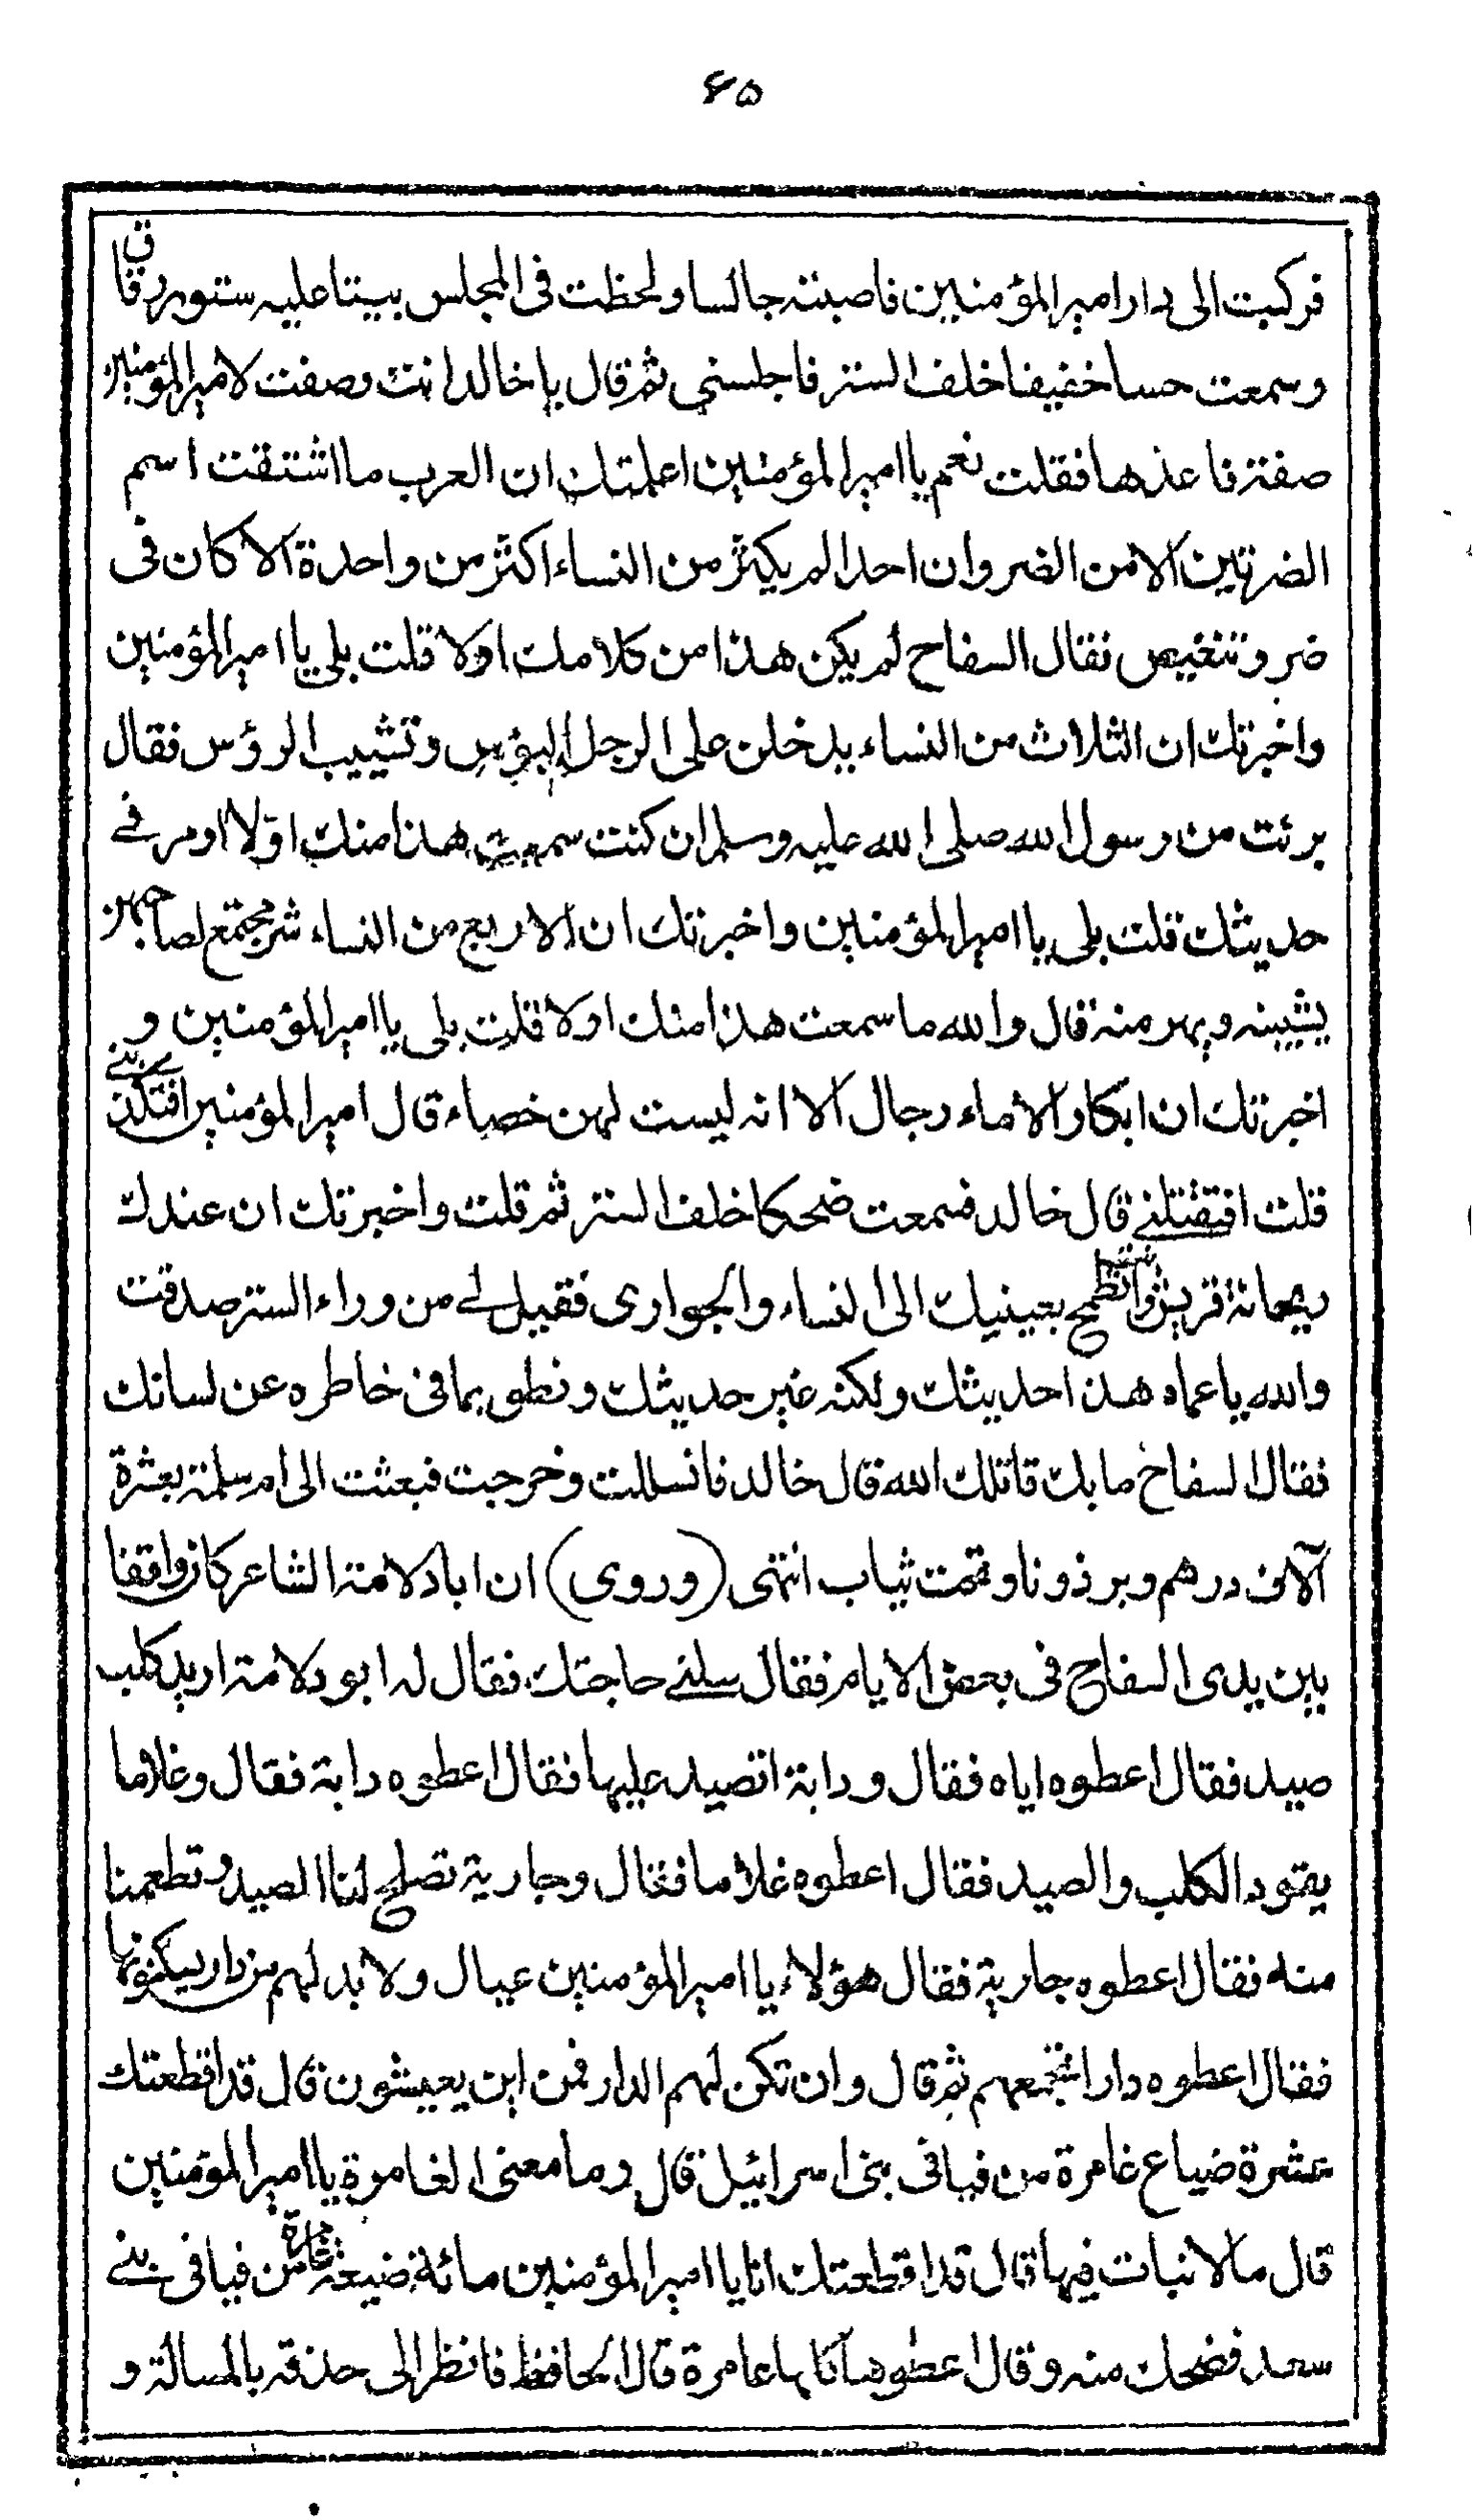 ٤٥
فركبت الى دار امير المؤمنين فاصبته جالسا ولحظت فى المجلس بيتا عليه ستور رقاق
وسمعت حسا خفيفا خلف الستر فاجلسنى ثم قال يا خالد انت وصفت لامير المؤمنين
صفة فاعذها فقلت نعم يا امير المؤمنين اعلمتك ان العرب ما اشتقت اسم
الضرتين الا من الضر وان احدا لم يكثر من النساء اكثر من واحدة الا كان فى
ضر وتنغيص فقال السفاح لم يكن هذا من كلامك اولا قلت بلى يا امير المؤمنين
واخبرتك ان الثلاث من النساء يدخلن على الرجل البؤس وتشييب الرؤس فقال
برئت من رسول الله صلى الله عليه وسلم ان كنت سمعت هذا منك اولا او مر فے
حديثك قلت بلى يا امير المؤمنين واخبرتك ان الاربع من النساء شر مجتمع لصاحبهن
يشيبنه ويهرمنه قال والله ما سمعت هذا منك اولا قلت بلى يا امير المؤمنين و
اخبرتك ان ابكار الاماء رجال الا انه ليست لهن خصاء قال امير المؤمنين افتكذبنے
قلت افتقتلنے قال خالد فسمعت ضحكا خلف الستر ثم قلت واخبرتك ان عندك
ريحانة قريش وانت تطمح بعينيك الى النساء والجوارى فقيل لے من وراء الستر صدقت
والله يا عماه هذا حديثك ولكنه غير حديثك ونطق بما فى خاطره عن لسانك
فقال السفاح ما بك قاتلك الله قال خالد فانسللت وخرجت فبعثت الى ام سلمة بعشرة
آلاف درهم وبرذونا وتخت ثياب انتهى (وروى) ان ابا دلامة الشاعر كان واقفا
بين يدى السفاح فى بعض الايام فقال سلنے حاجتك فقال له ابو دلامة اريد كلب
صيد فقال اعطوه اياه فقال ودابة اتصيد عليها فقال اعطوه دابة فقال وغلاما
يقود الكلب والصيد فقال اعطوه غلاما فقال وجارية تصلح لنا الصيد وتطعمنا
منه فقال اعطوه جارية فقال هؤلاء يا امير المؤمنين عيال ولا بد لهم من دار يسكنونها
فقال اعطوه دارا تجمعهم ثم قال وان تكن لهم الدار فمن اين يعيشون قال قد اقطعتك
عشرة ضياع غامرة من فيافى بنى اسرائيل قال وما معنى الغامرة يا امير المؤمنين
قال ما لا نبات فيها قال قد اقطعتك انا يا امير المؤمنين مائة ضيعة غامرة من فيافى بنے
سعد فضحك منه وقال اعطوها كلها عامرة قال الحافظ فانظر الى حذقه بالمسالة و